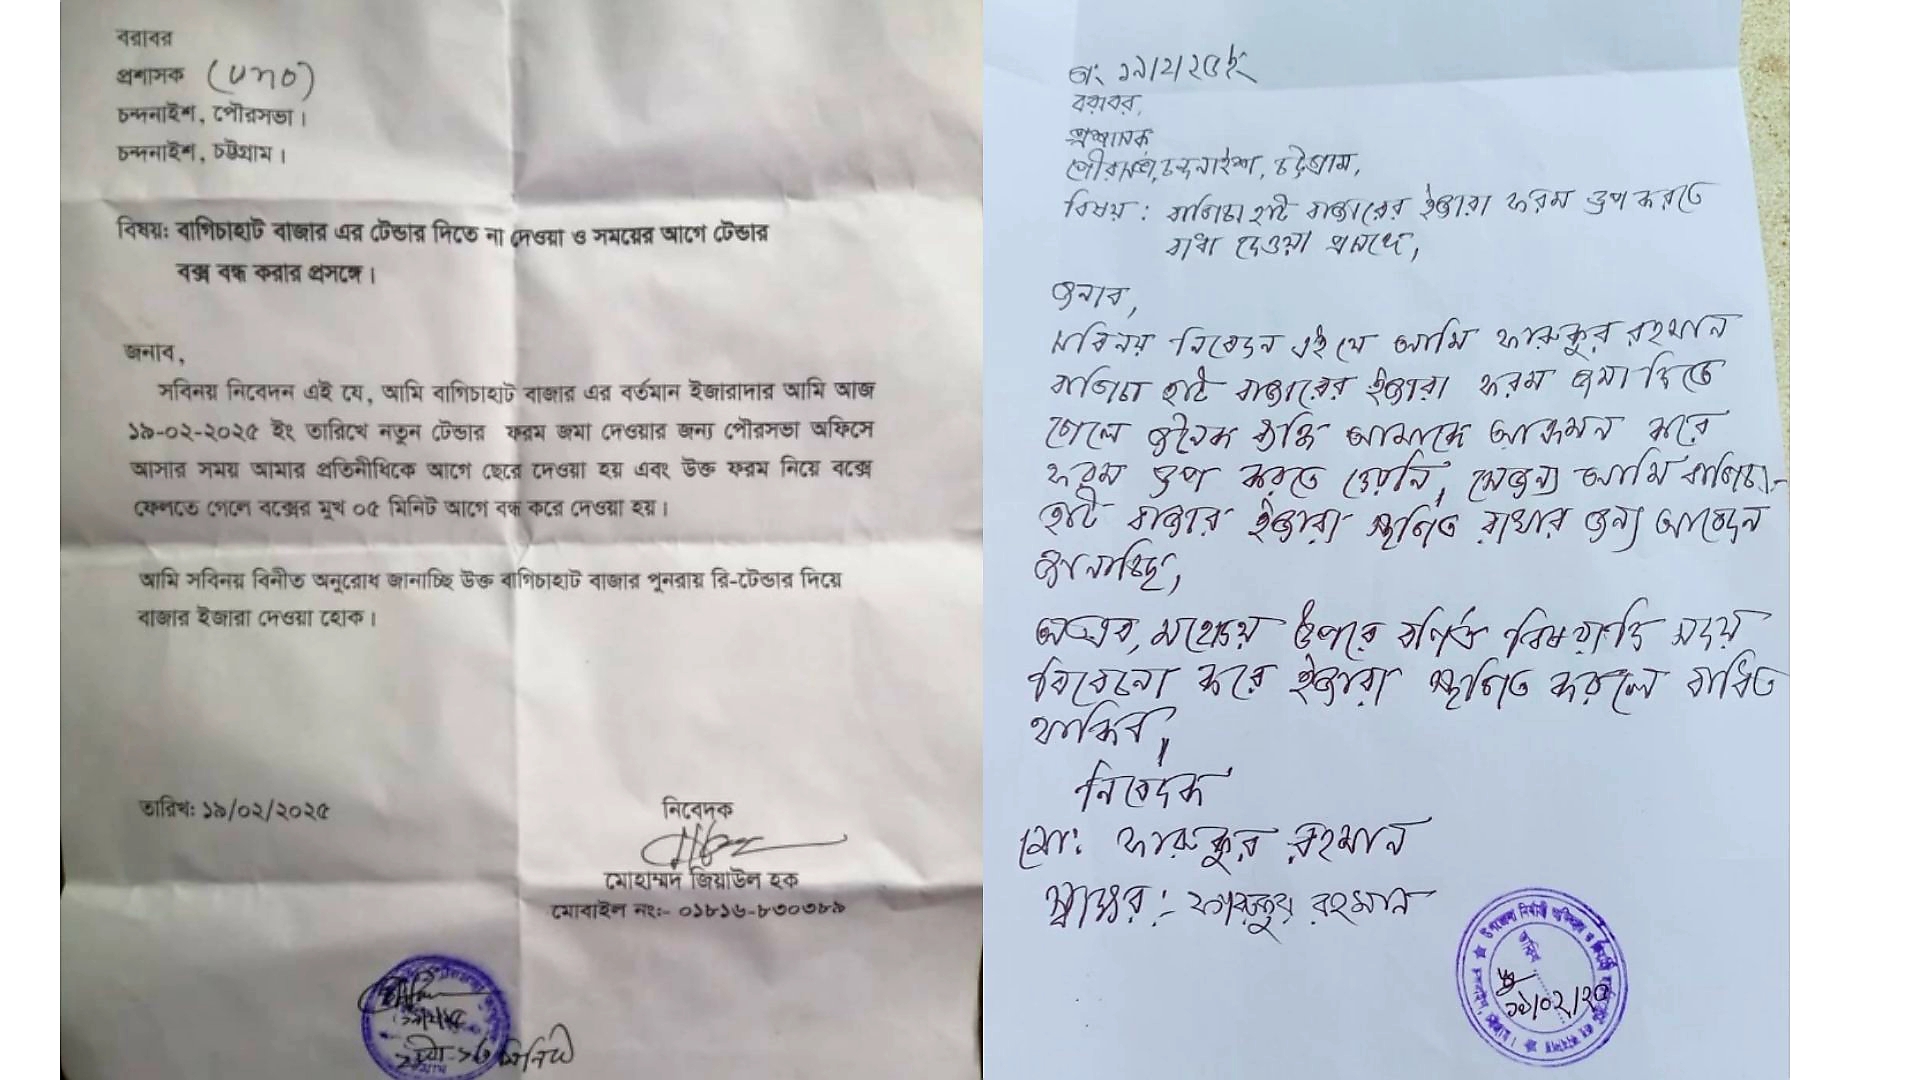 বরাবর
প্রশাসক (UNO)
চন্দনাইশ, পৌরসভা।
চন্দনাইশ, চট্টগ্রাম।
বিষয়: বাগিচাহাট বাজার এর টেন্ডার দিতে না দেওয়া ও সময়ের আগে টেন্ডার
বক্স বন্ধ করার প্রসঙ্গে।
জনাব,
সবিনয় নিবেদন এই যে, আমি বাগিচাহাট বাজার এর বর্তমান ইজারাদার আমি আজ
১৯-০২-২০২৫ ইং তারিখে নতুন টেন্ডার ফরম জমা দেওয়ার জন্য পৌরসভা অফিসে
আসার সময় আমার প্রতিনীধিকে আগে ছেরে দেওয়া হয় এবং উক্ত ফরম নিয়ে বক্সে
ফেলতে গেলে বক্সের মুখ ০৫ মিনিট আগে বন্ধ করে দেওয়া হয়।
আমি সবিনয় বিনীত অনুরোধ জানাচ্ছি উক্ত বাগিচাহাট বাজার পুনরায় রি-টেন্ডার দিয়ে
বাজার ইজারা দেওয়া হোক।
তারিখ: ১৯/০২/২০২৫
নিবেদক
মোহাম্মদ জিয়াউল হক
মোবাইল নং:- ০১৮১৬-৮৩০৩৮৯
তাং ১৯/২/২৫ ইং
বরাবর,
প্রশাসক
পৌরসভা, চন্দনাইশ, চট্টগ্রাম,
বিষয় : বাগিচা হাট বাজারের ইজারা ফরম ড্রপ করতে
বাধা দেওয়া প্রসঙ্গে,
জনাব,
সবিনয় নিবেদন এই যে আমি ফারুকুর রহমান
বাগিচা হাট বাজারের ইজারা ফরম জমা দিতে
গেলে জনৈক ব্যক্তি আমাকে আক্রমন করে
ফরম ড্রপ করতে দেয়নি, সেজন্য আমি বাগিচা-
হাট বাজার ইজারা স্থগিত রাখার জন্য আবেদন
জানাচ্ছি,
অতএব, মহোদয় উপরে বর্ণিত বিষয়াদি সদয়
বিবেচনা করে ইজারা স্থগিত করলে বাধিত
থাকিব,
নিবেদক
মো: ফারুকুর রহমান
স্বাক্ষর :- ফারুকুর রহমান
১৯/০২/২৫